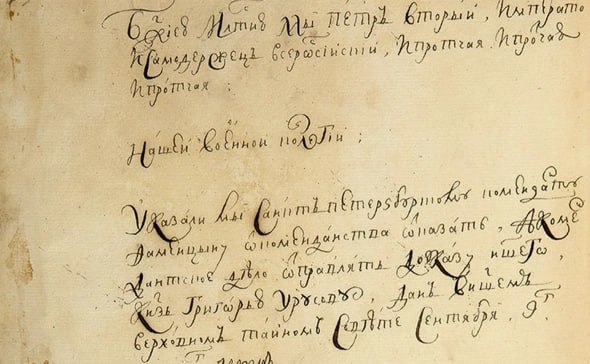 Бжиею Млтию Мы Петръ Вторый, Императо
И Самодержецъ всеросiйскiй, И протчая И протчая
И протчая :
Нашей военной колегiи :
Указали мы Санктъ петерзбургскому коменданту
Фаминцыну ѿ коменданства ѿказать, А коме
дантское дѣло ѿправлять до указу нашего,
Кнзь Григорью Урусову, Данъ в нашемъ
верховномъ тайномъ Совѣте Сентября, 9г